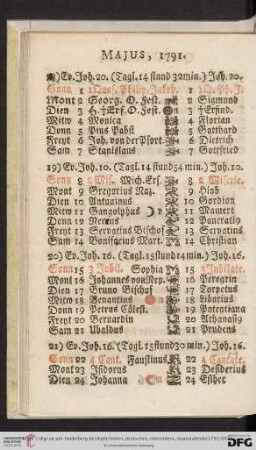 MAJUS, 1791.
Ev. Joh. 20. (Tagl. 14 stund 32 min.) Joh. 20.
Sonn 1 Quas. Philip. Jakob. 1 Q. Ph. J.
Mont 2 Georg. O. Fest. 2 Sigmund
Dien 3 H. † Erf. O. Fest. 3 † Erfind.
Mitw 4 Monica 4 Florian
Donn 5 Pius Pabst 5 Gotthard
Freyt 6 Joh. von der Pfort. 6 Dietrich
Sam 7 Stanislaus 7 Gottfried
19) Ev. Joh. 10. (Tagl. 14 stund 54 min.) Joh. 10.
Sonn 8 2 Mis. Mich. Ersch. 8 2 Miseric.
Mont 9 Gregorius Naz. 9 Hiob
Dien 10 Antoninus 10 Gordion
Mitw 11 Gangolphus 11 Mamert
Donn 12 Nereus 12 Pancratio
Freyt 13 Servatius Bischof 13 Servatius
Sam 14 Bonifacius Mart. 14 Christian
20) Ev. Joh. 16. (Tagl. 15 stund 14 min.) Joh. 16.
Sonn 15 3 Jubil. Sophia 15 3 Jubilate.
Mont 16 Johannes von Nep. 16 Peregrin
Dien 17 Bruno Bischof 17 Torpetus
Mitw 18 Venantius 18 Liborius
Donn 19 Petrus Cölest. 19 Potentiana
Freyt 20 Bernardin 20 Athanasio
Sam 21 Ubaldus 21 Prudens
21) Ev. Joh. 16. (Tagl. 15 stund 30 min.) Joh. 16.
Sonn 22 4 Cant. Faustinus 22 4 Cantate.
Mont 23 Isidorus 23 Desiderius
Dien 24 Johanna 24 Esther